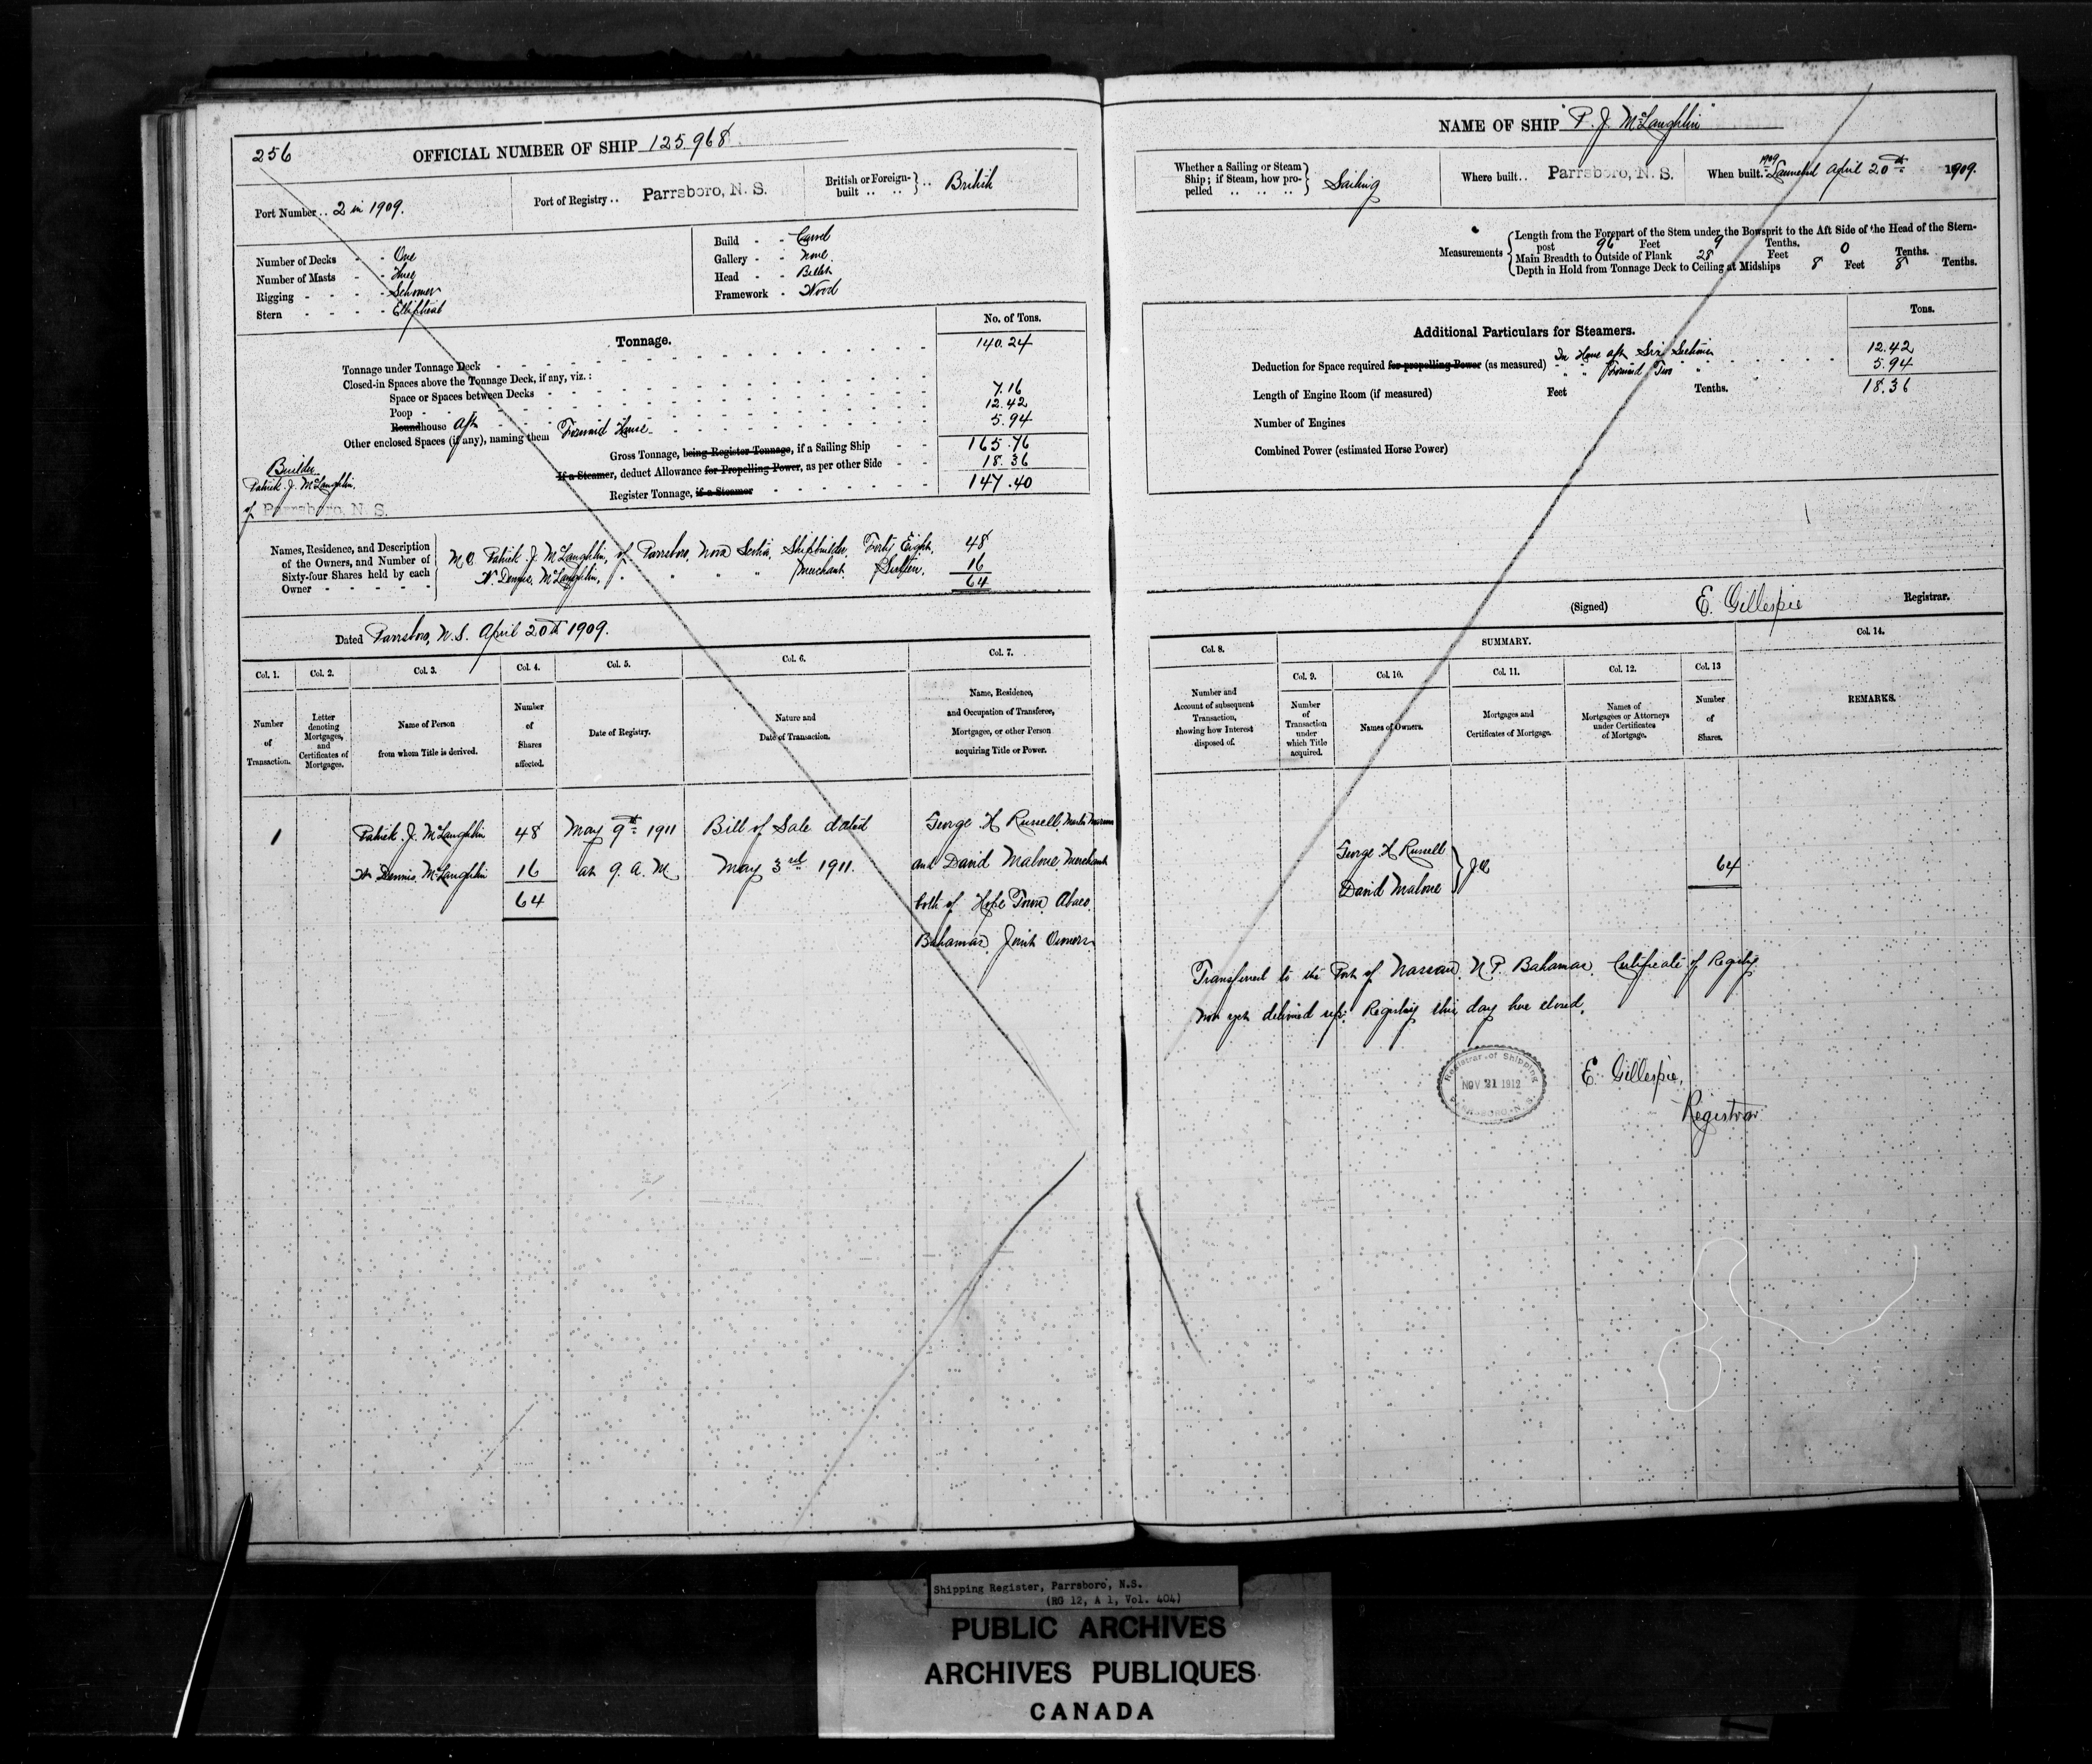 256
OFFICIAL NUMBER OF SHIP 125.968
Port Number .. 2 in 1909.
Port of Registry .. Parrsboro, N. S.
British or Foreign-built .. .. } .. British
Number of Decks - - One
Number of Masts - - Three
Rigging - - - - Schooner
Stern - - - - Elliptical
Build - - Carvel
Gallery - - None.
Head - - Billet
Framework - Wood
Tonnage.
No. of Tons.
Tonnage under Tonnage Deck - 140.24
Closed-in Spaces above the Tonnage Deck, if any, viz.:
Space or Spaces between Decks - 7.16
Poop - 12.42
Roundhouse Aft - 5.94
Other enclosed Spaces (if any), naming them Forward House
Gross Tonnage, being Register Tonnage, if a Sailing Ship - - 165.76
If a Steamer, deduct Allowance for Propelling Power, as per other Side - - 18.36
Register Tonnage, if a Steamer - 147.40
Builder
Patrick J. McLaughlin.
of Parrsboro, N. S.
Names, Residence, and Description
of the Owners, and Number of
Sixty-four Shares held by each
Owner - - - - -
M.O. Patrick J. McLaughlin, of Parrsboro, Nova Scotia, Shipbuilder, Forty Eight, 48
N. Dennis McLaughlin, " " " " Merchant. Sixteen. 16
64
Dated Parrsboro, N.S. April 20th 1909.
Col. 1. Col. 2. Col. 3. Col. 4. Col. 5. Col. 6. Col. 7.
Number of Transaction.
Letter denoting Mortgages, and Certificates of Mortgages.
Name of Person from whom Title is derived.
Number of Shares affected.
Date of Registry.
Nature and Date of Transaction.
Name, Residence, and Occupation of Transferee, Mortgagee, or other Person acquiring Title or Power.
1 Patrick J. McLaughlin 48 May 9th 1911 Bill of Sale dated George H Russell, Master Mariner
N. Dennis McLaughlin 16 at 9. A. M. May 3rd 1911. and David Malone, Merchant
64 both of Hope Town, Abaco,
Bahamas, Joint Owners
NAME OF SHIP "P. J. McLaughlin"
Whether a Sailing or Steam
Ship; if Steam, how pro-
pelled .. .. .. } Sailing
Where built .. Parrsboro, N. S.
When built. 1909 Launched April 20th 1909.
Measurements
Length from the Forepart of the Stem under the Bowsprit to the Aft Side of the Head of the Stern-
post 96 Feet 9 Tenths.
Main Breadth to Outside of Plank 28 Feet 0 Tenths.
Depth in Hold from Tonnage Deck to Ceiling at Midships 8 Feet 8 Tenths.
Additional Particulars for Steamers.
Tons.
Deduction for Space required for propelling Power (as measured) In House aft Six Seamen 12.42
" " Forward Two " 5.94
18.36
Length of Engine Room (if measured) Feet Tenths.
Number of Engines
Combined Power (estimated Horse Power)
(Signed) E. Gillespie Registrar.
SUMMARY.
Col. 8. Col. 9. Col. 10. Col. 11. Col. 12. Col. 13 Col. 14.
Number and Account of subsequent Transaction, showing how Interest disposed of.
Number of Transaction under which Title acquired.
Names of Owners.
Mortgages and Certificates of Mortgage.
Names of Mortgagees or Attorneys under Certificates of Mortgage.
Number of Shares.
REMARKS.
George H Russell
David Malone } J.O. 64
Transferred to the Port of Nassau, N. P. Bahamas. Certificate of Registry
not yet delivered up. Registry this day here closed.
Registrar of Shipping
NOV 21 1912
PARRSBORO N. S.
E. Gillespie,
Registrar
Shipping Register, Parrsboro, N.S.
(RG 12, A 1, Vol. 404)
PUBLIC ARCHIVES
ARCHIVES PUBLIQUES
CANADA